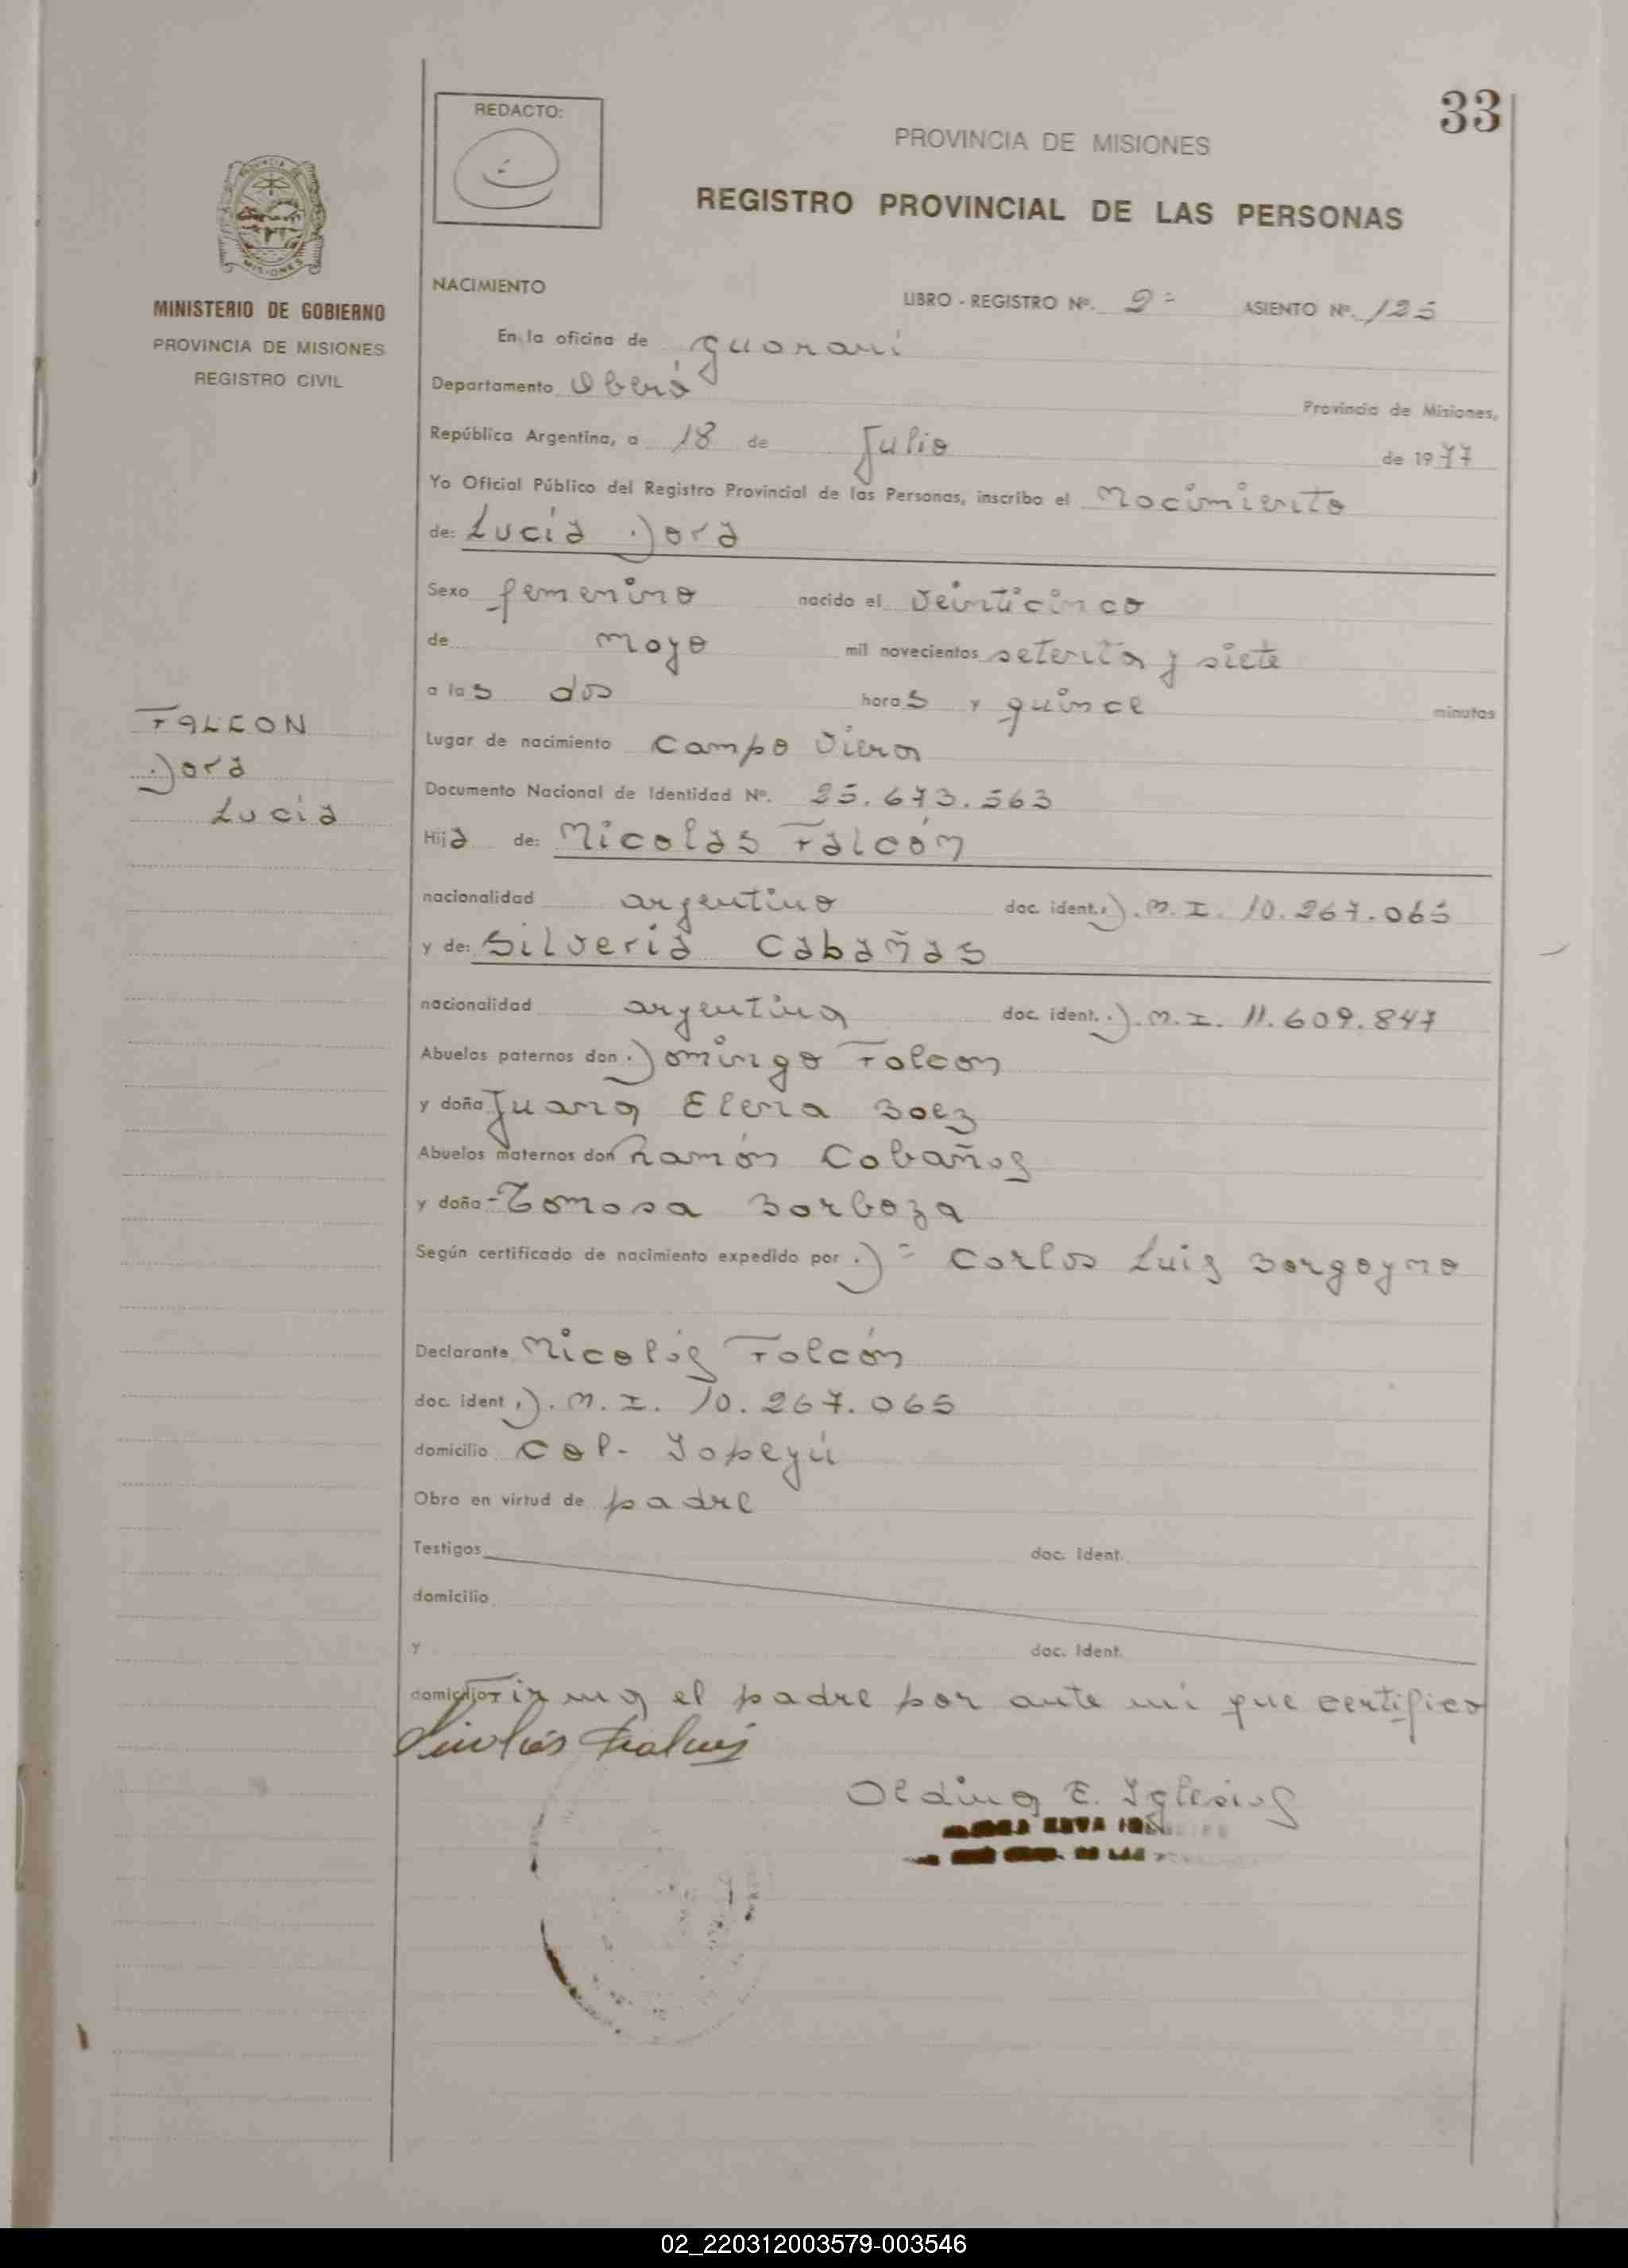 33
REDACTO:
PROVINCIA DE MISIONES
REGISTRO PROVINCIAL DE LAS PERSONAS
MISIONES
MINISTERIO DE GOBIERNO
PROVINCIA DE MISIONES
REGISTRO CIVIL
NACIMIENTO
LIBRO - REGISTRO Nº. 2= ASIENTO Nº. 125
En la oficina de Guarani
Departamento Oberá Provincia de Misiones,
República Argentina, a 18 de Julio de 1977
Yo Oficial Público del Registro Provincial de las Personas, inscribo el Nacimiento
de: Lucía Dora
Sexo femenino nacido el veinticinco
de mayo mil novecientos setenta y siete
a las dos horas y quince minutos
FALCON
Dora
Lucía
Lugar de nacimiento Campo Viera
Documento Nacional de Identidad Nº. 25.673.563
Hija de: Nicolas Falcón
nacionalidad argentino doc. ident. D.N.I. 10.267.065
y de: Silveria Cabañas
nacionalidad argentina doc. ident. D.N.I. 11.609.847
Abuelos paternos don Domingo Falcon
y doña Juana Elena Baez
Abuelos maternos don Ramón Cabañas
y doña - Tomasa Barboza
Según certificado de nacimiento expedido por D= Carlos Luis Borgoyno
Declarante Nicolás Falcón
doc. ident D.N.I. 10.267.065
domicilio Col- Yapeyú
Obra en virtud de padre
Testigos doc. ident.
domicilio
y doc. ident.
domicilio Firma el padre por ante mi que certifico
Nicolás Falcón
Oldina E. Iglesias
02_220312003579-003546